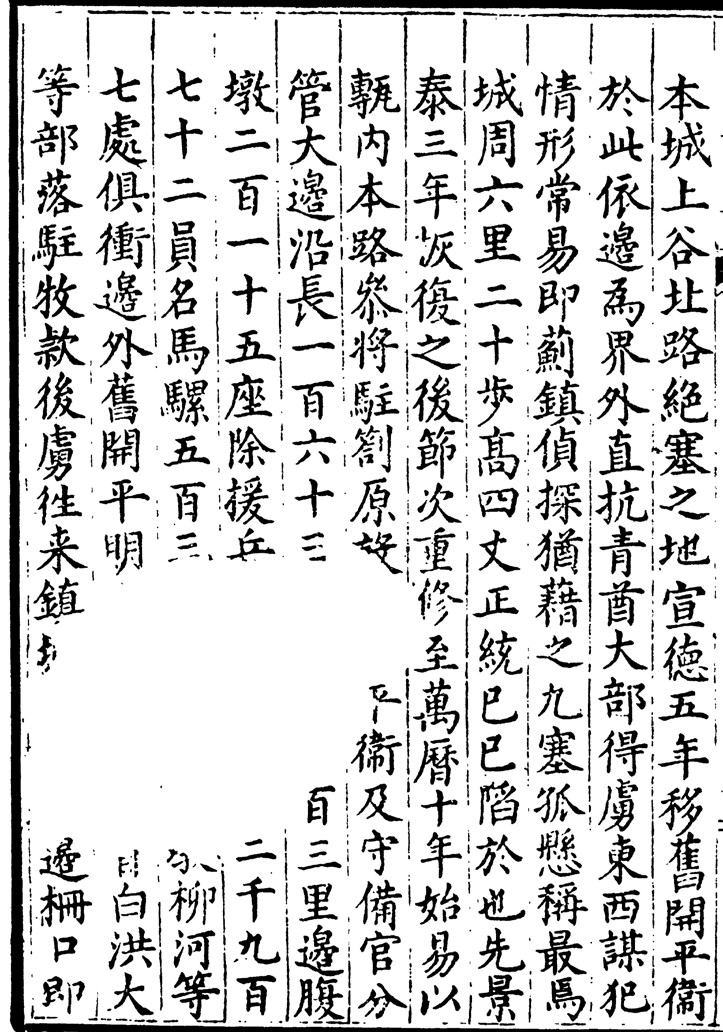 本城上谷北路絕塞之地宣德五年移舊開平衞
於此依邊為界外直抗青酋大部得虜東西謀犯
情形常易即薊鎮偵探猶藉之九塞孤懸稱最焉
城周六里二十步高四丈正統己巳陷於也先景
泰三年恢復之後節次重修至萬曆十年始易以
甎内本路叅將駐劄原設 平衞及守備官分
管大邊沿長一百六十三 百三里邊腹
墩二百一十五座除援兵 二千九百
七十二員名馬騾五百三 柳河等
七處俱衝邊外舊開平明 白洪大
等部落駐牧款後虜徃来鎮 邊柵口即